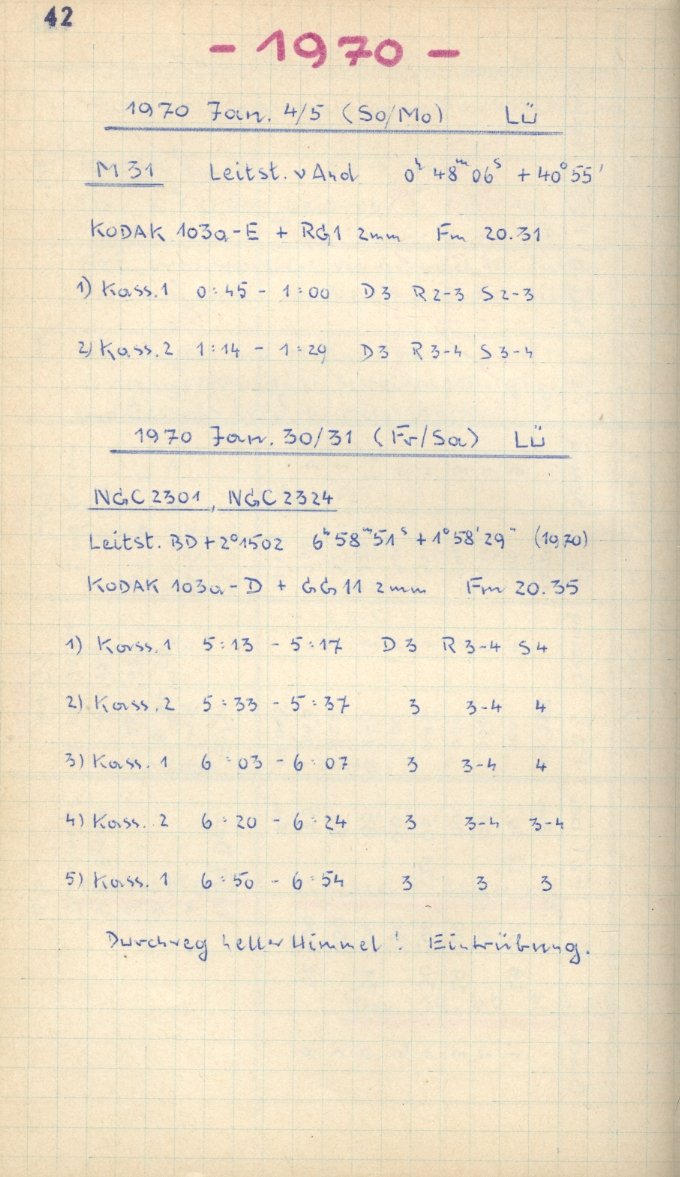 42
- 1970 -
1970 Jan. 4/5 (So/Mo) Lü
M 31 Leitst. ν And 0ʰ 48ᵐ 06ˢ + 40° 55'
KODAK 103a-E + RG1 2mm Fm 20.31
1) Kass. 1 0:45 - 1:00 D3 R2-3 S2-3
2) Kass. 2 1:14 - 1:29 D3 R3-4 S3-4
1970 Jan. 30/31 (Fr/Sa) Lü
NGC 2301, NGC 2324
Leitst. BD+2°1502 6ʰ 58ᵐ 51ˢ + 1° 58' 29" (1970)
KODAK 103a-D + GG11 2mm Fm 20.35
1) Kass. 1 5:13 - 5:17 D3 R3-4 S4
2) Kass. 2 5:33 - 5:37 3 3-4 4
3) Kass. 1 6:03 - 6:07 3 3-4 4
4) Kass. 2 6:20 - 6:24 3 3-4 3-4
5) Kass. 1 6:50 - 6:54 3 3 3
Durchweg heller Himmel! Eintrübung.